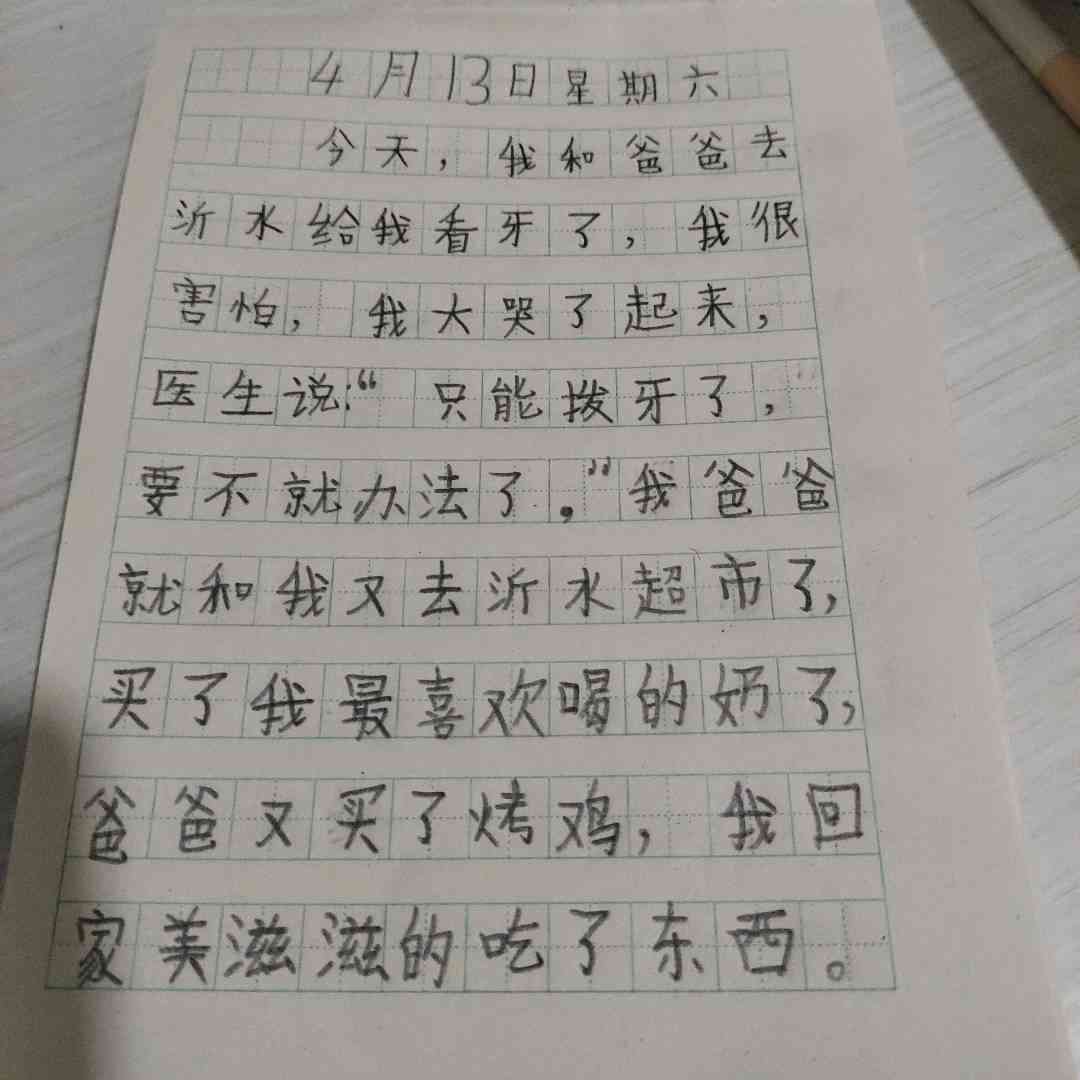 4月13日星期六
今天，我和爸爸去
沂水给我看牙了，我很
害怕，我大哭了起来，
医生说：“只能拨牙了，
要不就办法了。”我爸爸
就和我又去沂水超市了，
买了我最喜欢喝的奶了，
爸爸又买了烤鸡，我回
家美滋滋的吃了东西。